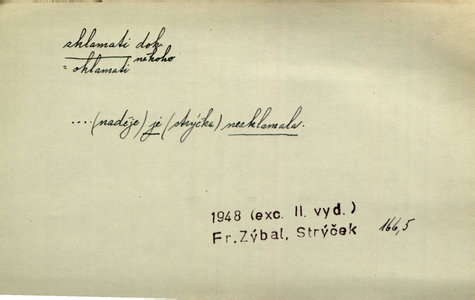 zklamati dok.
nekoho
= oklamati
....(naděje) je (strýčka) nezklamala.
1948 (exc. II. vyd.)
Fr. Zýbal, Strýček 166,5